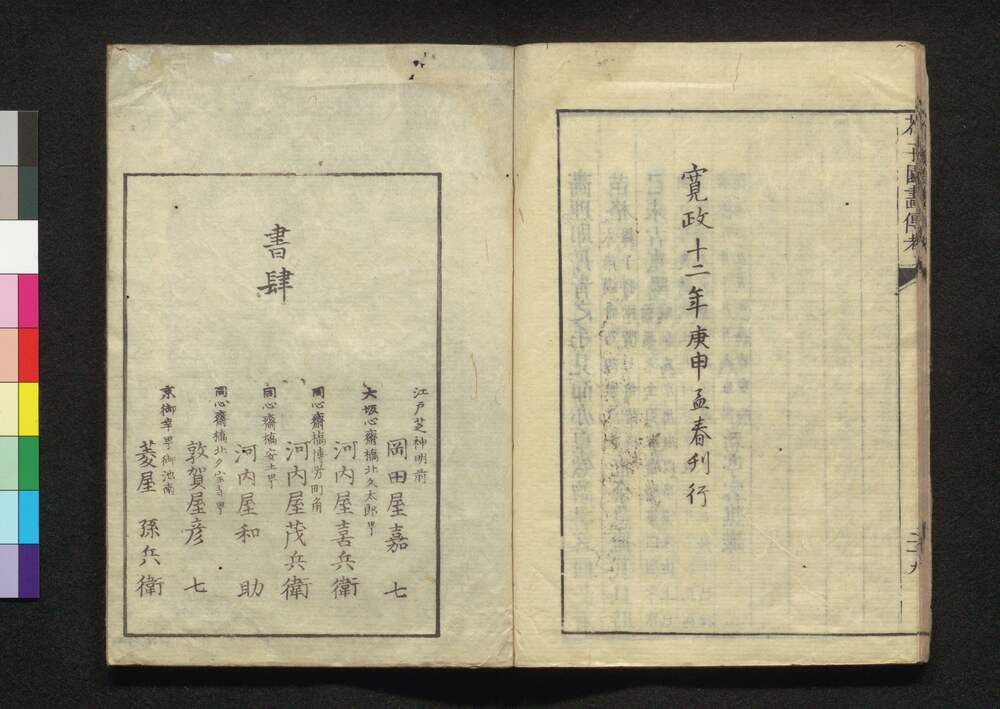 芥子園畫傳
寛政十二年庚申孟春刋行
書肆
江戸芝神明前
岡田屋嘉七
大坂心齋橋北久太郎甼
河内屋喜兵衛
同心齋橋博労町角
河内屋茂兵衛
同心齋橋安土甼
河内屋和助
同心齋橋北
敦賀屋彦七
京御幸甼御池南
菱屋孫兵衛